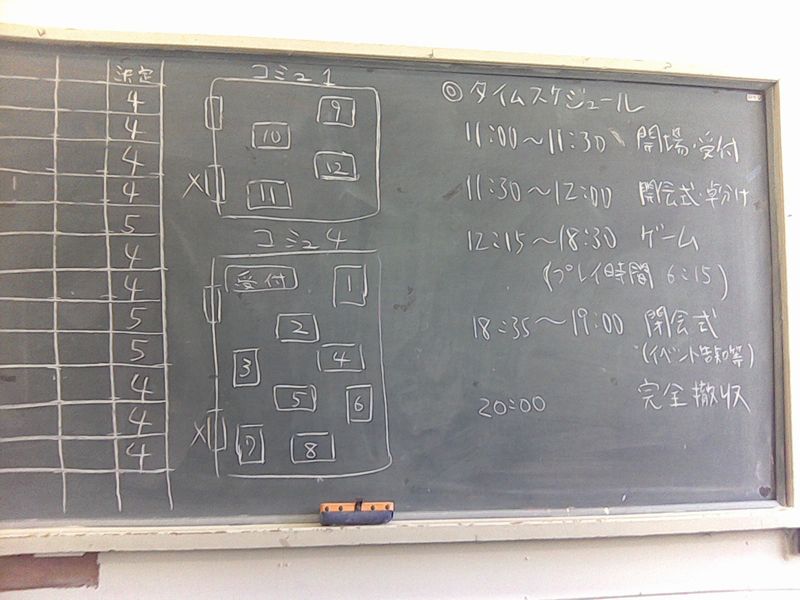 決定
4
4
4
4
5
4
4
5
5
4
4
4
コミュ1
9
10
12
11
X
コミュ4
受付
1
2
3
4
5
6
X
7
8
◎タイムスケジュール
11:00〜11:30 開場・受付
11:30〜12:00 開会式・卓分け
12:15〜18:30 ゲーム
(プレイ時間 6:15)
18:35〜19:00 閉会式
(イベント告知等)
20:00 完全撤収